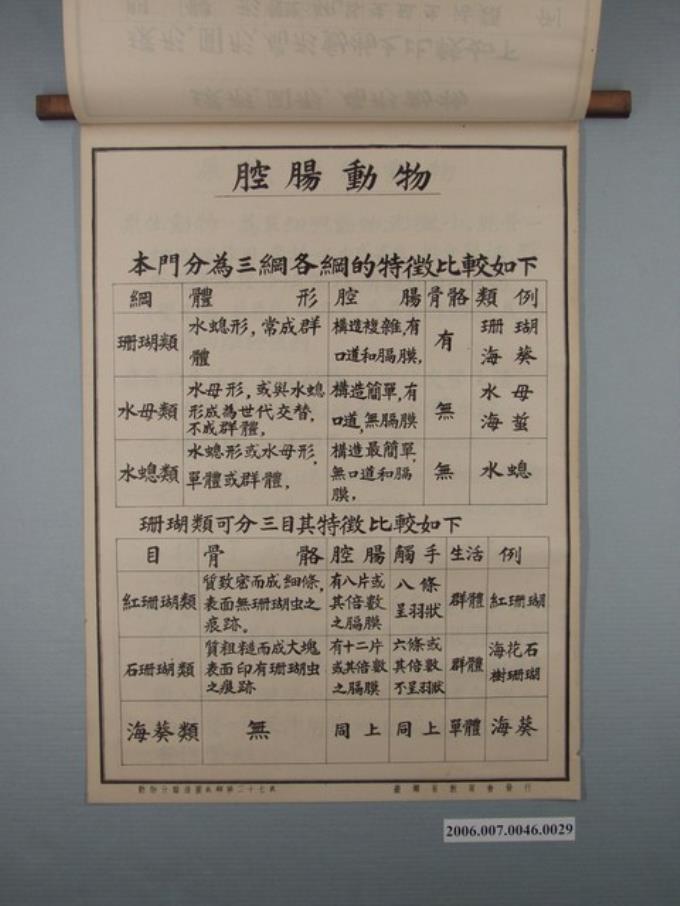 腔腸動物
本門分為三綱各綱的特徵比較如下
綱 體形 腔腸 骨骼 類例
珊瑚類 水螅形,常成群體 構造複雜,有口道和膈膜, 有 珊瑚 海葵
水母類 水母形,或與水螅形成為世代交替,不成群體, 構造簡單,有口道,無膈膜 無 水母 海蜇
水螅類 水螅形或水母形,單體或群體, 構造最簡單,無口道和膈膜, 無 水螅
珊瑚類可分三目其特徵比較如下
目 骨骼 腔腸 觸手 生活 例
紅珊瑚類 質致密而成細條,表面無珊瑚虫之痕跡。 有八片或其倍數之膈膜 八條呈羽狀 群體 紅珊瑚
石珊瑚類 質粗糙而成大塊,表面印有珊瑚虫之痕跡 有十二片或其倍數之膈膜 六條或其倍數不呈羽狀 群體 海花石 樹珊瑚
海葵類 無 同上 同上 單體 海葵
2006.007.0046.0029